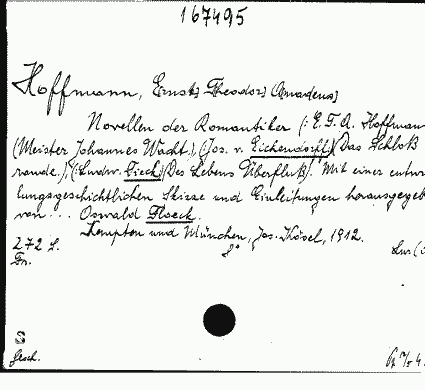 167495
Hoffmann, Ernst Theodor (Amadeus)
Novellen der Romantiker (: E. T. A. Hoffmann
(Meister Johannes Wacht.), (Jos. v. Eichendorff) (Das Schloß
rande.), (Ludw. Tieck) (Des Lebens Überfluß). Mit einer entwi
lungsgeschichtlichen Skizze und Einleitungen herausgegeb
von ... Oswald Floeck.
Kempten und München, Jos. Kösel, 1912.
272 S. 8°
Fr.
Gesch.